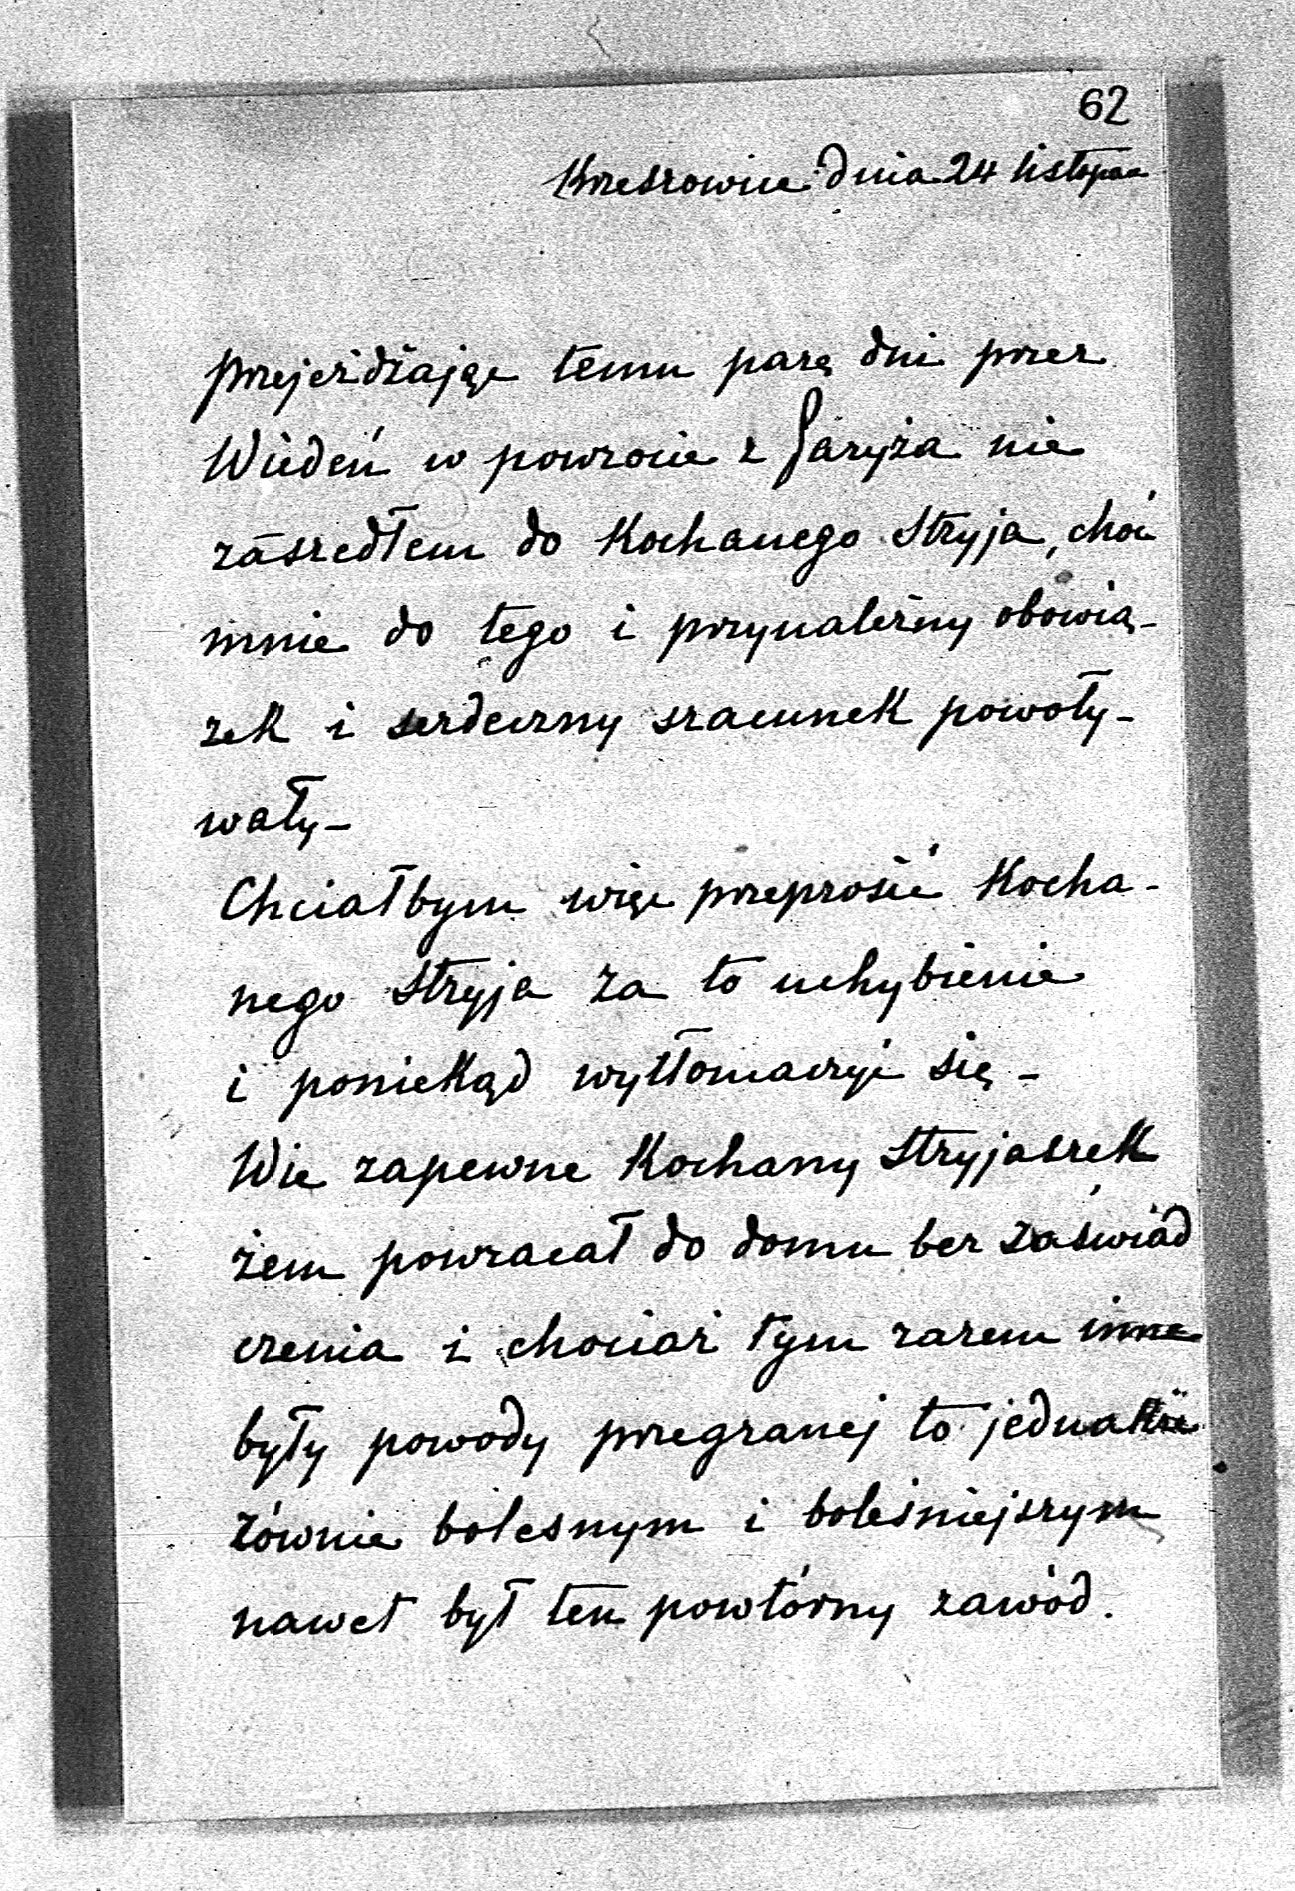 62
Krzeszowice dnia 24 listopa
przejeżdżając temu parę dni przez
Wiedeń w powrocie z Paryża nie
zaszedłem do Kochanego Stryja, choć
mnie do tego i przynależny obowią-
zek i serdeczny szacunek powoły-
wały-
Chciałbym więc przeprosić Kocha-
nego Stryja za to uchybienie
i poniekąd wytłomaczyć się -
Wie zapewne Kochany Stryjaszek
żem powracał do domu bez zaświad
czenia i chociaż tym razem inne
były powody przegranej to jednakże
równie bolesnym i boleśniejszym
nawet był ten powtórny zawód.